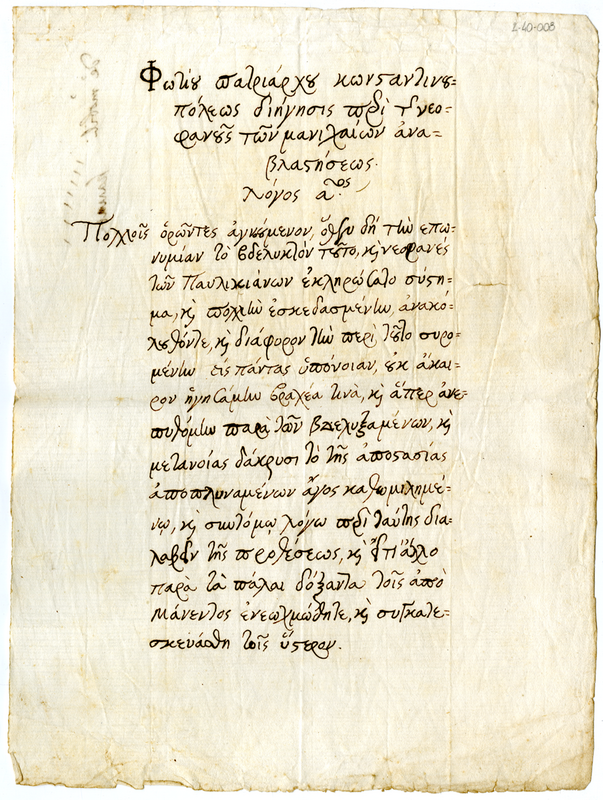 4-40-003
Φωτίου πατριάρχου κωνσταντινου=
πόλεως διήγησις περὶ τ νεο=
φανοῦς τῶν μανιχαίων ἀνα=
βλαστήσεως.
Λόγος α<sup>ος</sup>.
Πολλοῖς ὁρῶντες ἀγνοούμενον, ὅθεν δὴ τὴν ἐπω=
νυμίαν τὸ βδελυκτόν τοῦτο, κὶ νεοφανές
τῶν Παυλικιάνων ἐκληρώσατο σύστη=
μα, κὶ πολλὴν ἐσκεδασμένην, ἀνακό=
λουθόντε, κὶ διάφορον τὴν περὶ τοῦτο συρο=
μένην εἰς πάντας ὑπόνοιαν, οὐκ ἄκαι=
ρον ἡγησάμην βραχέα τινὰ, κὶ ἅπερ ἀνε=
πυθόμην παρὰ τῶν βδελυξαμένων, κὶ
μετανοίας δάκρυσι τὸ τῆς ἀποστασίας
ἀποπλυναμένων ἄγος καθωμιλημέ=
νῳ, κὶ συντόμῳ λόγῳ περὶ ταύτης δια=
λαβεῖν τῆς προθέσεως, κὶ ὅτι ἄλλο
παρὰ τὰ πάλαι δόξαντα τοῖς ἀπὸ
Μάνεντος ἐνεωτερίσθητε, κὶ συγκατε=
σκευάσθη τοῖς ὕστερον.